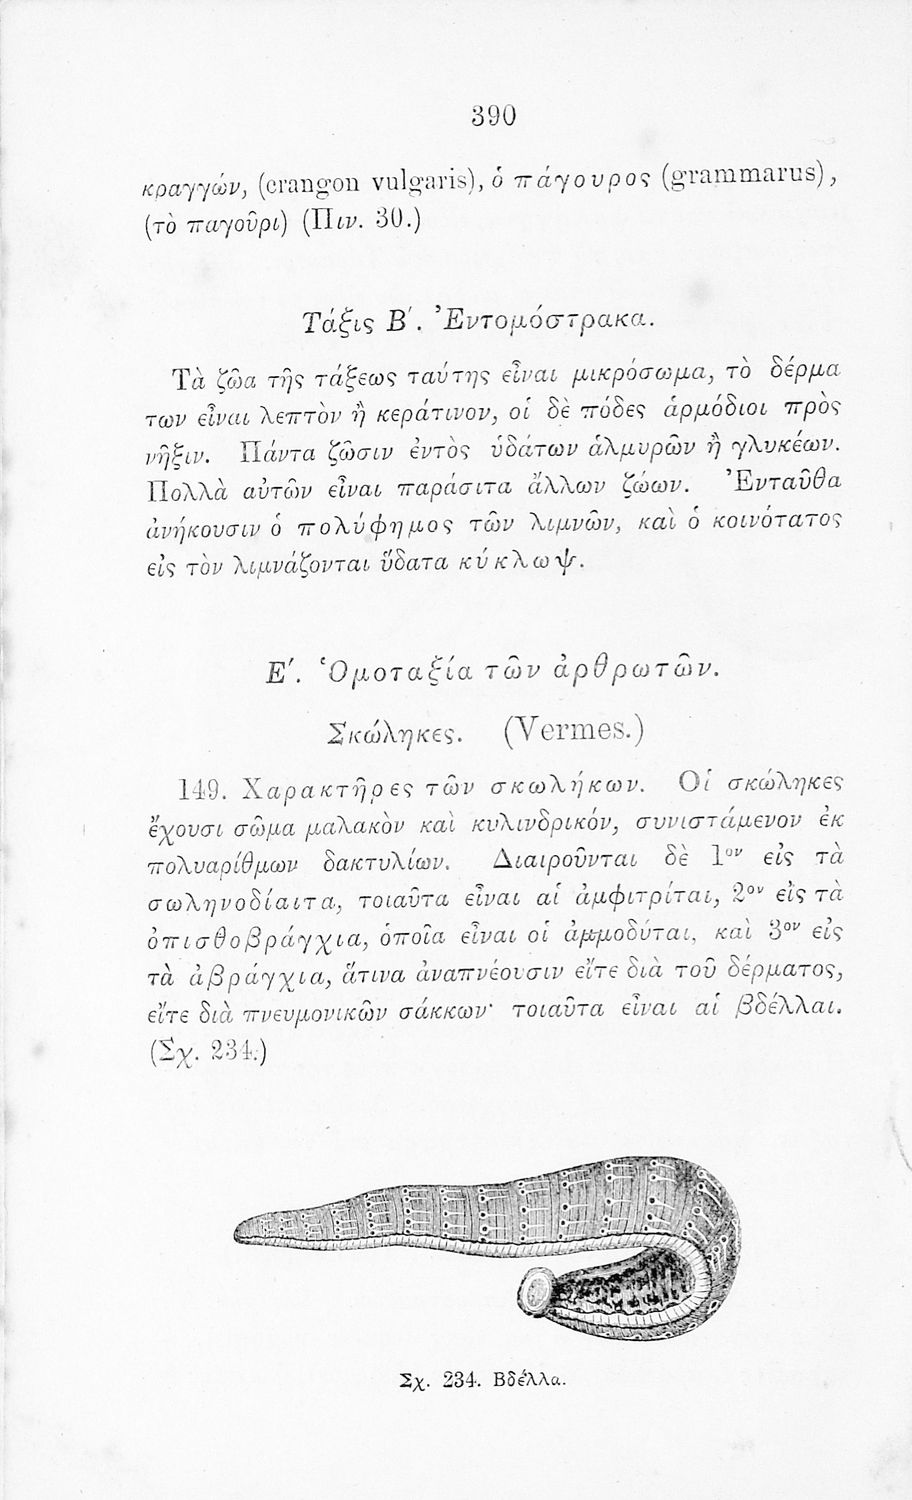 390
κραγγών, (crangon vulgaris), ὁ πάγουρος (grammarus),
(τὸ παγοῦρι) (Πιν. 30.)
Τάξις Β΄. Ἐντομόστρακα.
Τὰ ζῶα τῆς τάξεως ταύτης εἶναι μικρόσωμα, τὸ δέρμα
των εἶναι λεπτὸν ἢ κεράτινον, οἱ δὲ πόδες ἁρμόδιοι πρὸς
νῆξιν. Πάντα ζῶσιν ἐντὸς ὑδάτων ἁλμυρῶν ἢ γλυκέων.
Πολλὰ αὐτῶν εἶναι παράσιτα ἄλλων ζώων. Ἐνταῦθα
ἀνήκουσιν ὁ πολύφημος τῶν λιμνῶν, καὶ ὁ κοινότατος
εἰς τὸν λιμνάζονται ὕδατα κύκλωψ.
Ε΄. Ὁμοταξία τῶν ἀρθρωτῶν.
Σκώληκες. (Vermes.)
149. Χαρακτῆρες τῶν σκωλήκων. Οἱ σκώληκες
ἔχουσι σῶμα μαλακὸν καὶ κυλινδρικόν, συνιστάμενον ἐκ
πολυαρίθμων δακτυλίων. Διαιροῦνται δὲ 1ον εἰς τὰ
σωληνοδίαιτα, τοιαῦτα εἶναι αἱ ἀμφιτρίται, 2ον εἰς τὰ
ὀπισθοβράγχια, ὁποῖα εἶναι οἱ ἀμμοδύται, καὶ 3ον εἰς
τὰ ἀβράγχια, ἅτινα ἀναπνέουσιν εἴτε διὰ τοῦ δέρματος,
εἴτε διὰ πνευμονικῶν σάκκων· τοιαῦτα εἶναι αἱ βδέλλαι.
(Σχ. 234.)
Σχ. 234. Βδέλλα.